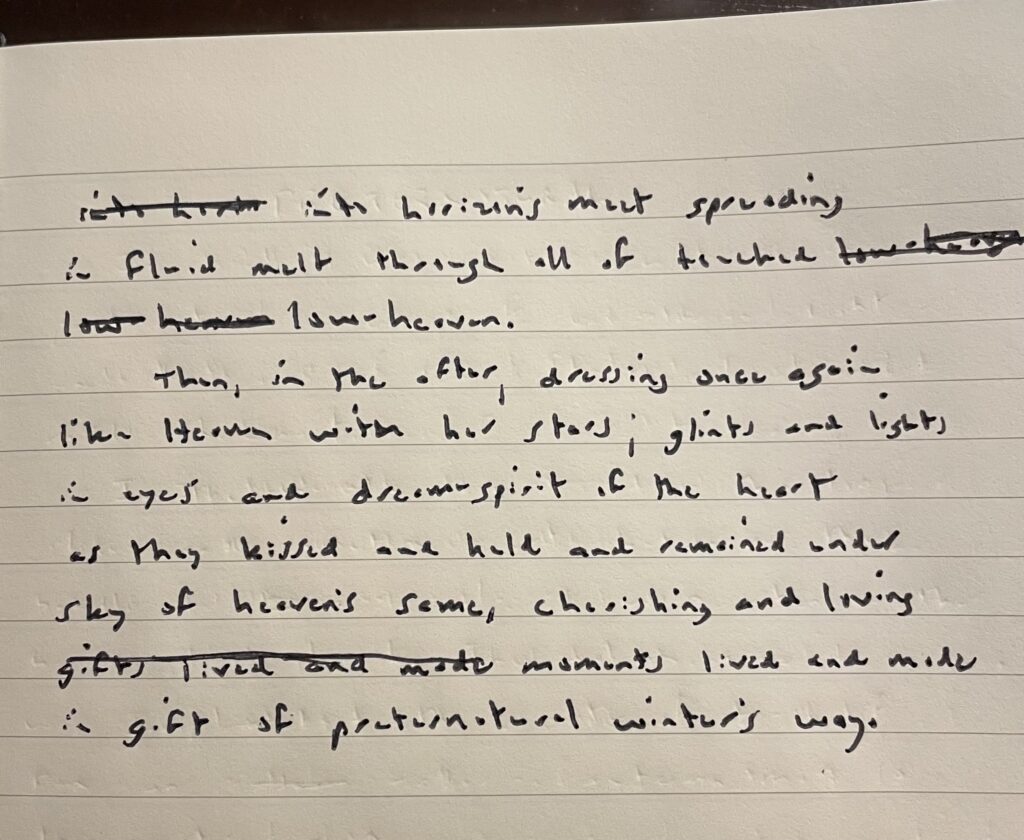 into horiz into horizon's meet spreading
in fluid melt through all of touched low-heaven
low heaven low-heaven.
Then, in the after, dressing once again
like Heaven with her stars; glints and lights
in eyes and dream-spirit of the heart
as they kissed and held and remained under
sky of heaven's same, cherishing and loving
gifts lived and made moments lived and made
in gift of preternatural winter's way.